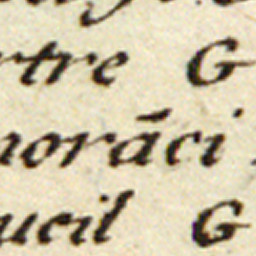 rtre G
noráci
ueil G